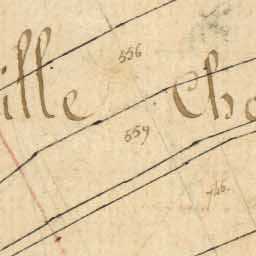 556
ille Che
559
746.